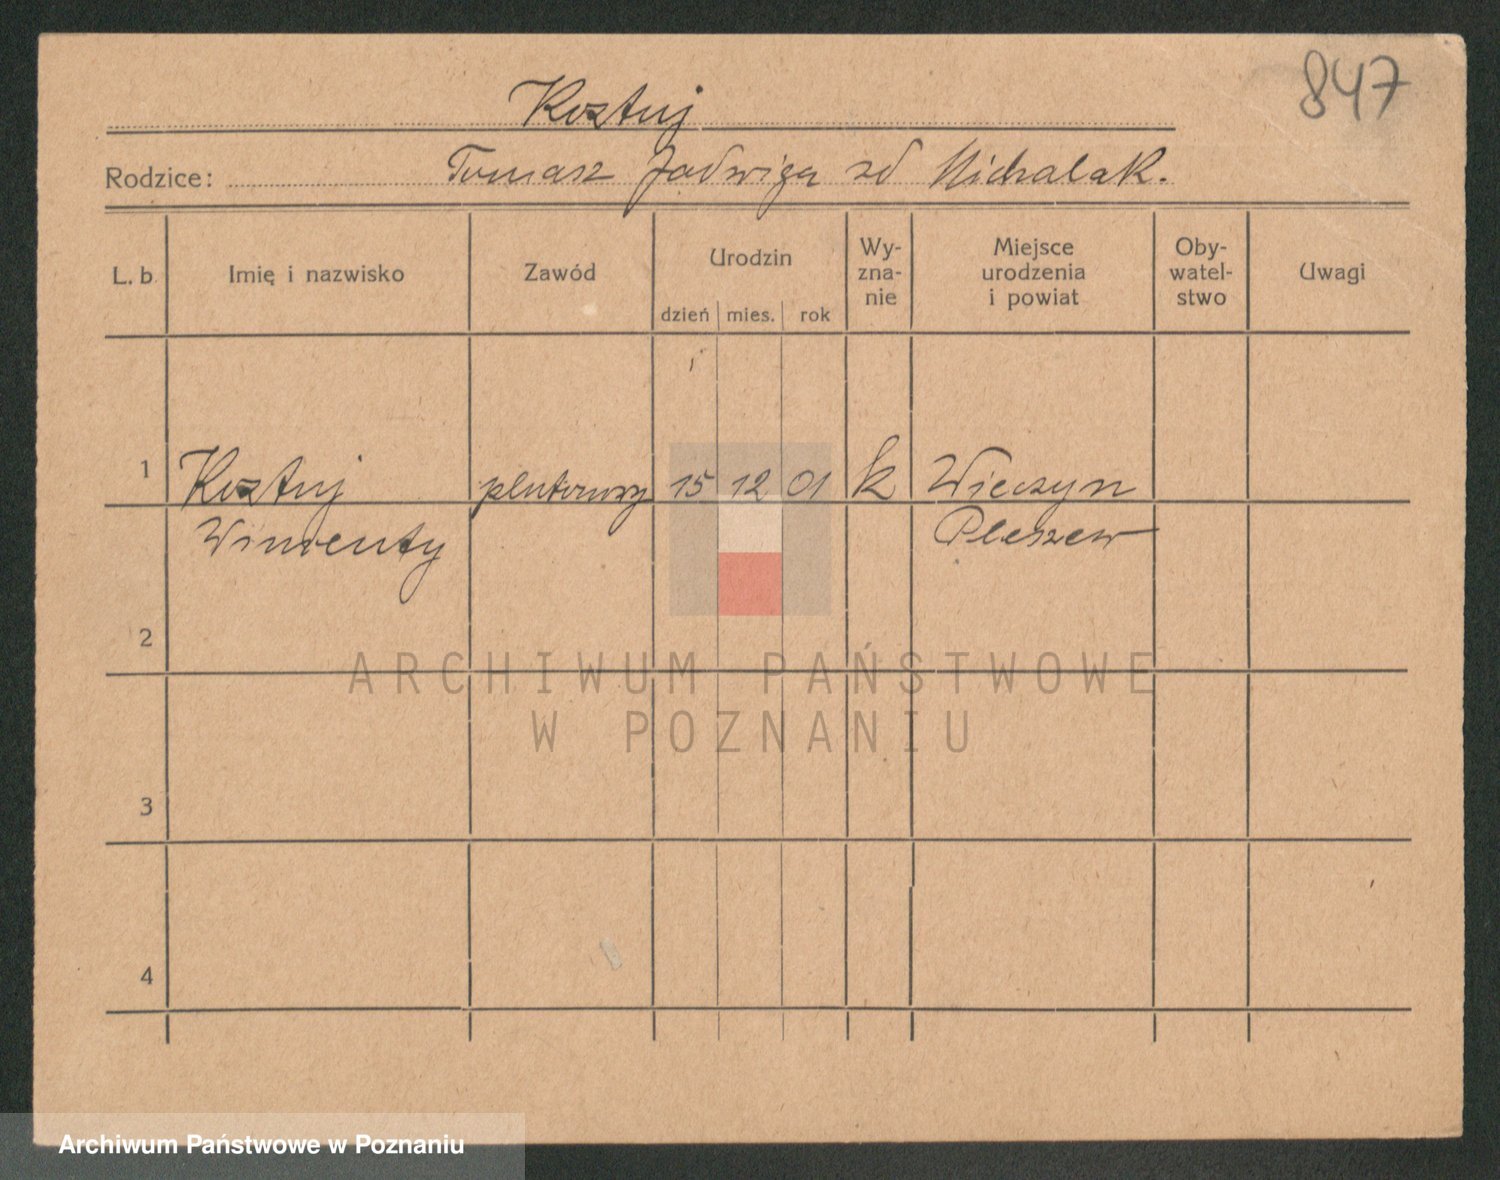 847
Kostuj
Rodzice: Tomasz Jadwiga zd Michalak.
L. b. Imię i nazwisko Zawód Urodzin Wy-zna-nie Miejsce urodzenia i powiat Oby-watel-stwo Uwagi
dzień mies. rok
1 Kostuj plutonowy 15 12 01 k Wieczyn
Wincenty Pleszew
2
ARCHIWUM PAŃSTWOWE
W POZNANIU
3
4
Archiwum Państwowe w Poznaniu